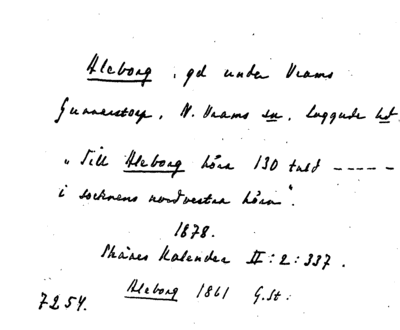 Aleborg, gd under Vrams
Gunnarstorp, N. Vrams sn, Luggude hd.
"Till Aleborg höra 130 tnld -----
i socknens nordvestra hörn".
1878.
Skånes Kalender II:2:337.
Aleborg 1861 G.St:
7254.